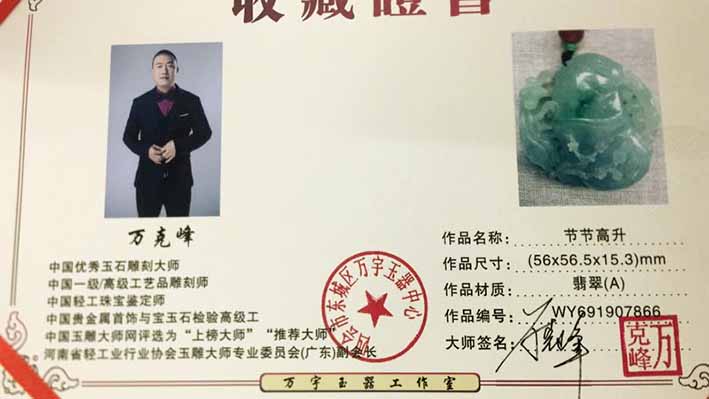 收藏證書
万克峰
中国优秀玉石雕刻大师
中国一级/高级工艺品雕刻师
中国轻工珠宝鉴定师
中国贵金属首饰与宝玉石检验高级工
中国玉雕大师网评选为“上榜大师”“推荐大师”
河南省轻工业行业协会玉雕大师专业委员会(广东)副会长
四会市东城区万宇玉器中心
作品名称: 节节高升
作品尺寸: (56x56.5x15.3)mm
作品材质: 翡翠(A)
作品编号: WY691907866
大师签名:
万克峰
万宇玉器工作室